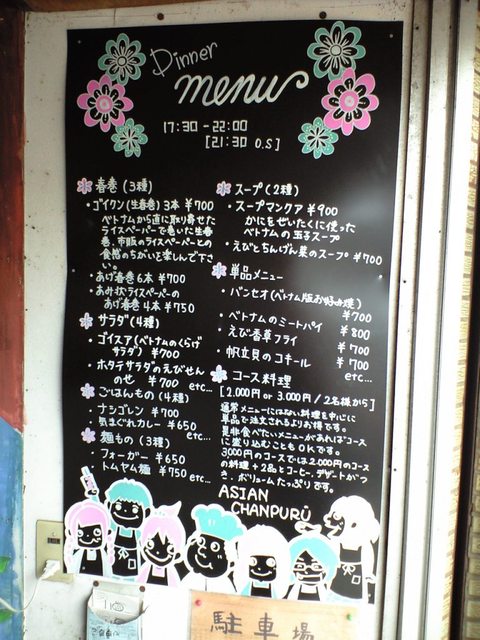 Dinner
menu
17:30-22:00
[21:30 O.S]
春巻(3種)
・ゴイクン(生春巻)3本 ¥700
ベトナムから直に取り寄せた
ライスペーパーで巻いた生春
巻、市販のライスペーパーとの
食感のちがいを楽しんで下さ
い。
・あげ春巻6本 ¥700
・あみ状ライスペーパーの
あげ春巻4本 ¥750
サラダ(4種)
・ゴイスア(ベトナムのくらげ
サラダ) ¥700
・ホタテサラダのえびせん
のせ ¥700 etc...
ごはんもの(4種)
・ナシゴレン ¥700
・気まぐれカレー ¥650
etc...
麺もの(3種)
・フォーガー ¥650
・トムヤム麺 ¥750 etc...
スープ(2種)
・スープマンクア ¥900
かにをぜいたくに使った
ベトナムの玉子スープ
・えびとちんげん菜のスープ ¥700
単品メニュー
・バンセオ(ベトナム版お好み焼)
¥700
・ベトナムのミートパイ ¥800
・えび香草フライ ¥700
・帆立貝のコキール ¥700
etc...
コース料理
[2.000円 or 3.000円/2名様から]
通常メニューにはない料理を中心に
単品で注文されるよりお得です。
是非食べたいメニューがあればコース
に盛り込むこともOKです。
3000円のコースでは2.000円のコース
の料理+2品とコーヒー、デザートがつ
き、ボリュームたっぷりです。
ASIAN
CHANPURŪ
駐車場